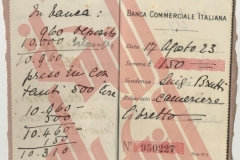 In banca:
960 deposito
10.000
10.960
preso in con
tanti 500 lire
10.960-
500
10.460
150
10.310
BANCA COMMERCIALE ITALIANA
Data 17 Agosto 23
Somma 150
Luigi
cameriere
libretto
No 950227